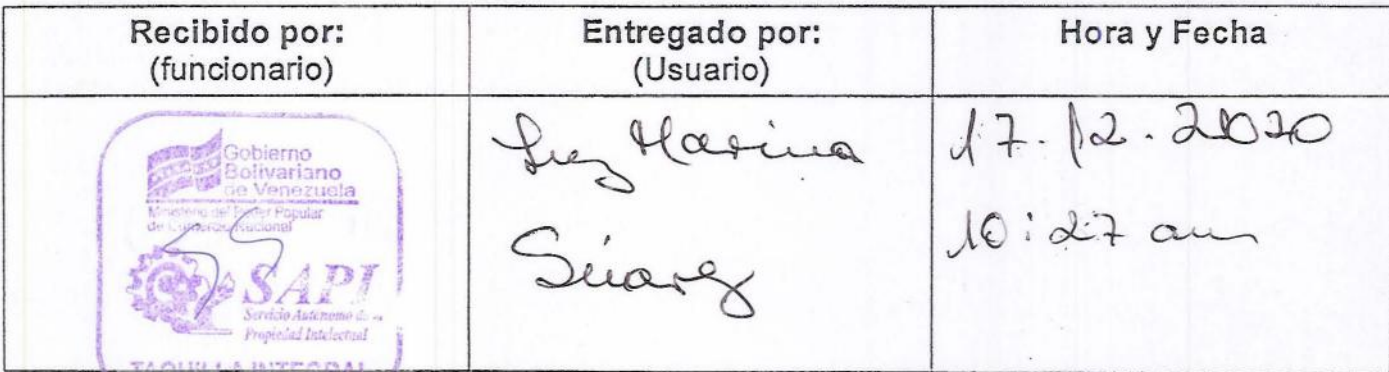 Recibido por:
(funcionario)
Entregado por:
(Usuario)
Hora y Fecha
Gobierno
Bolivariano
de Venezuela
Ministerio del Poder Popular
de Comercio Nacional
SAPI
Servicio Autónomo de la
Propiedad Intelectual
TAQUILLA INTEGRAL
Luz Marina
Súarez
17.12.2020
10:27 am